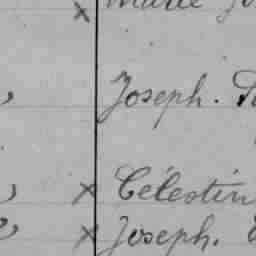 x Marie
Joseph.
x Célestin
x Joseph.